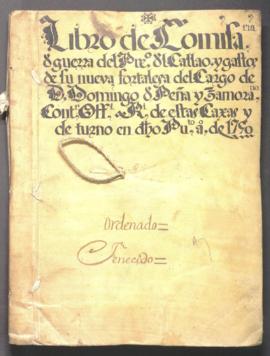 Libro de Comisa,
d guerra del Pre.º dl Callao, y gastos
de su nueva fortaleza del Cargo de
D. Domingo d Peña y Zamora,
Cont. Off. R. de estas Caxas y
de turno en dho Pu.to a. de 1750
Ordenado=
Fenecido=